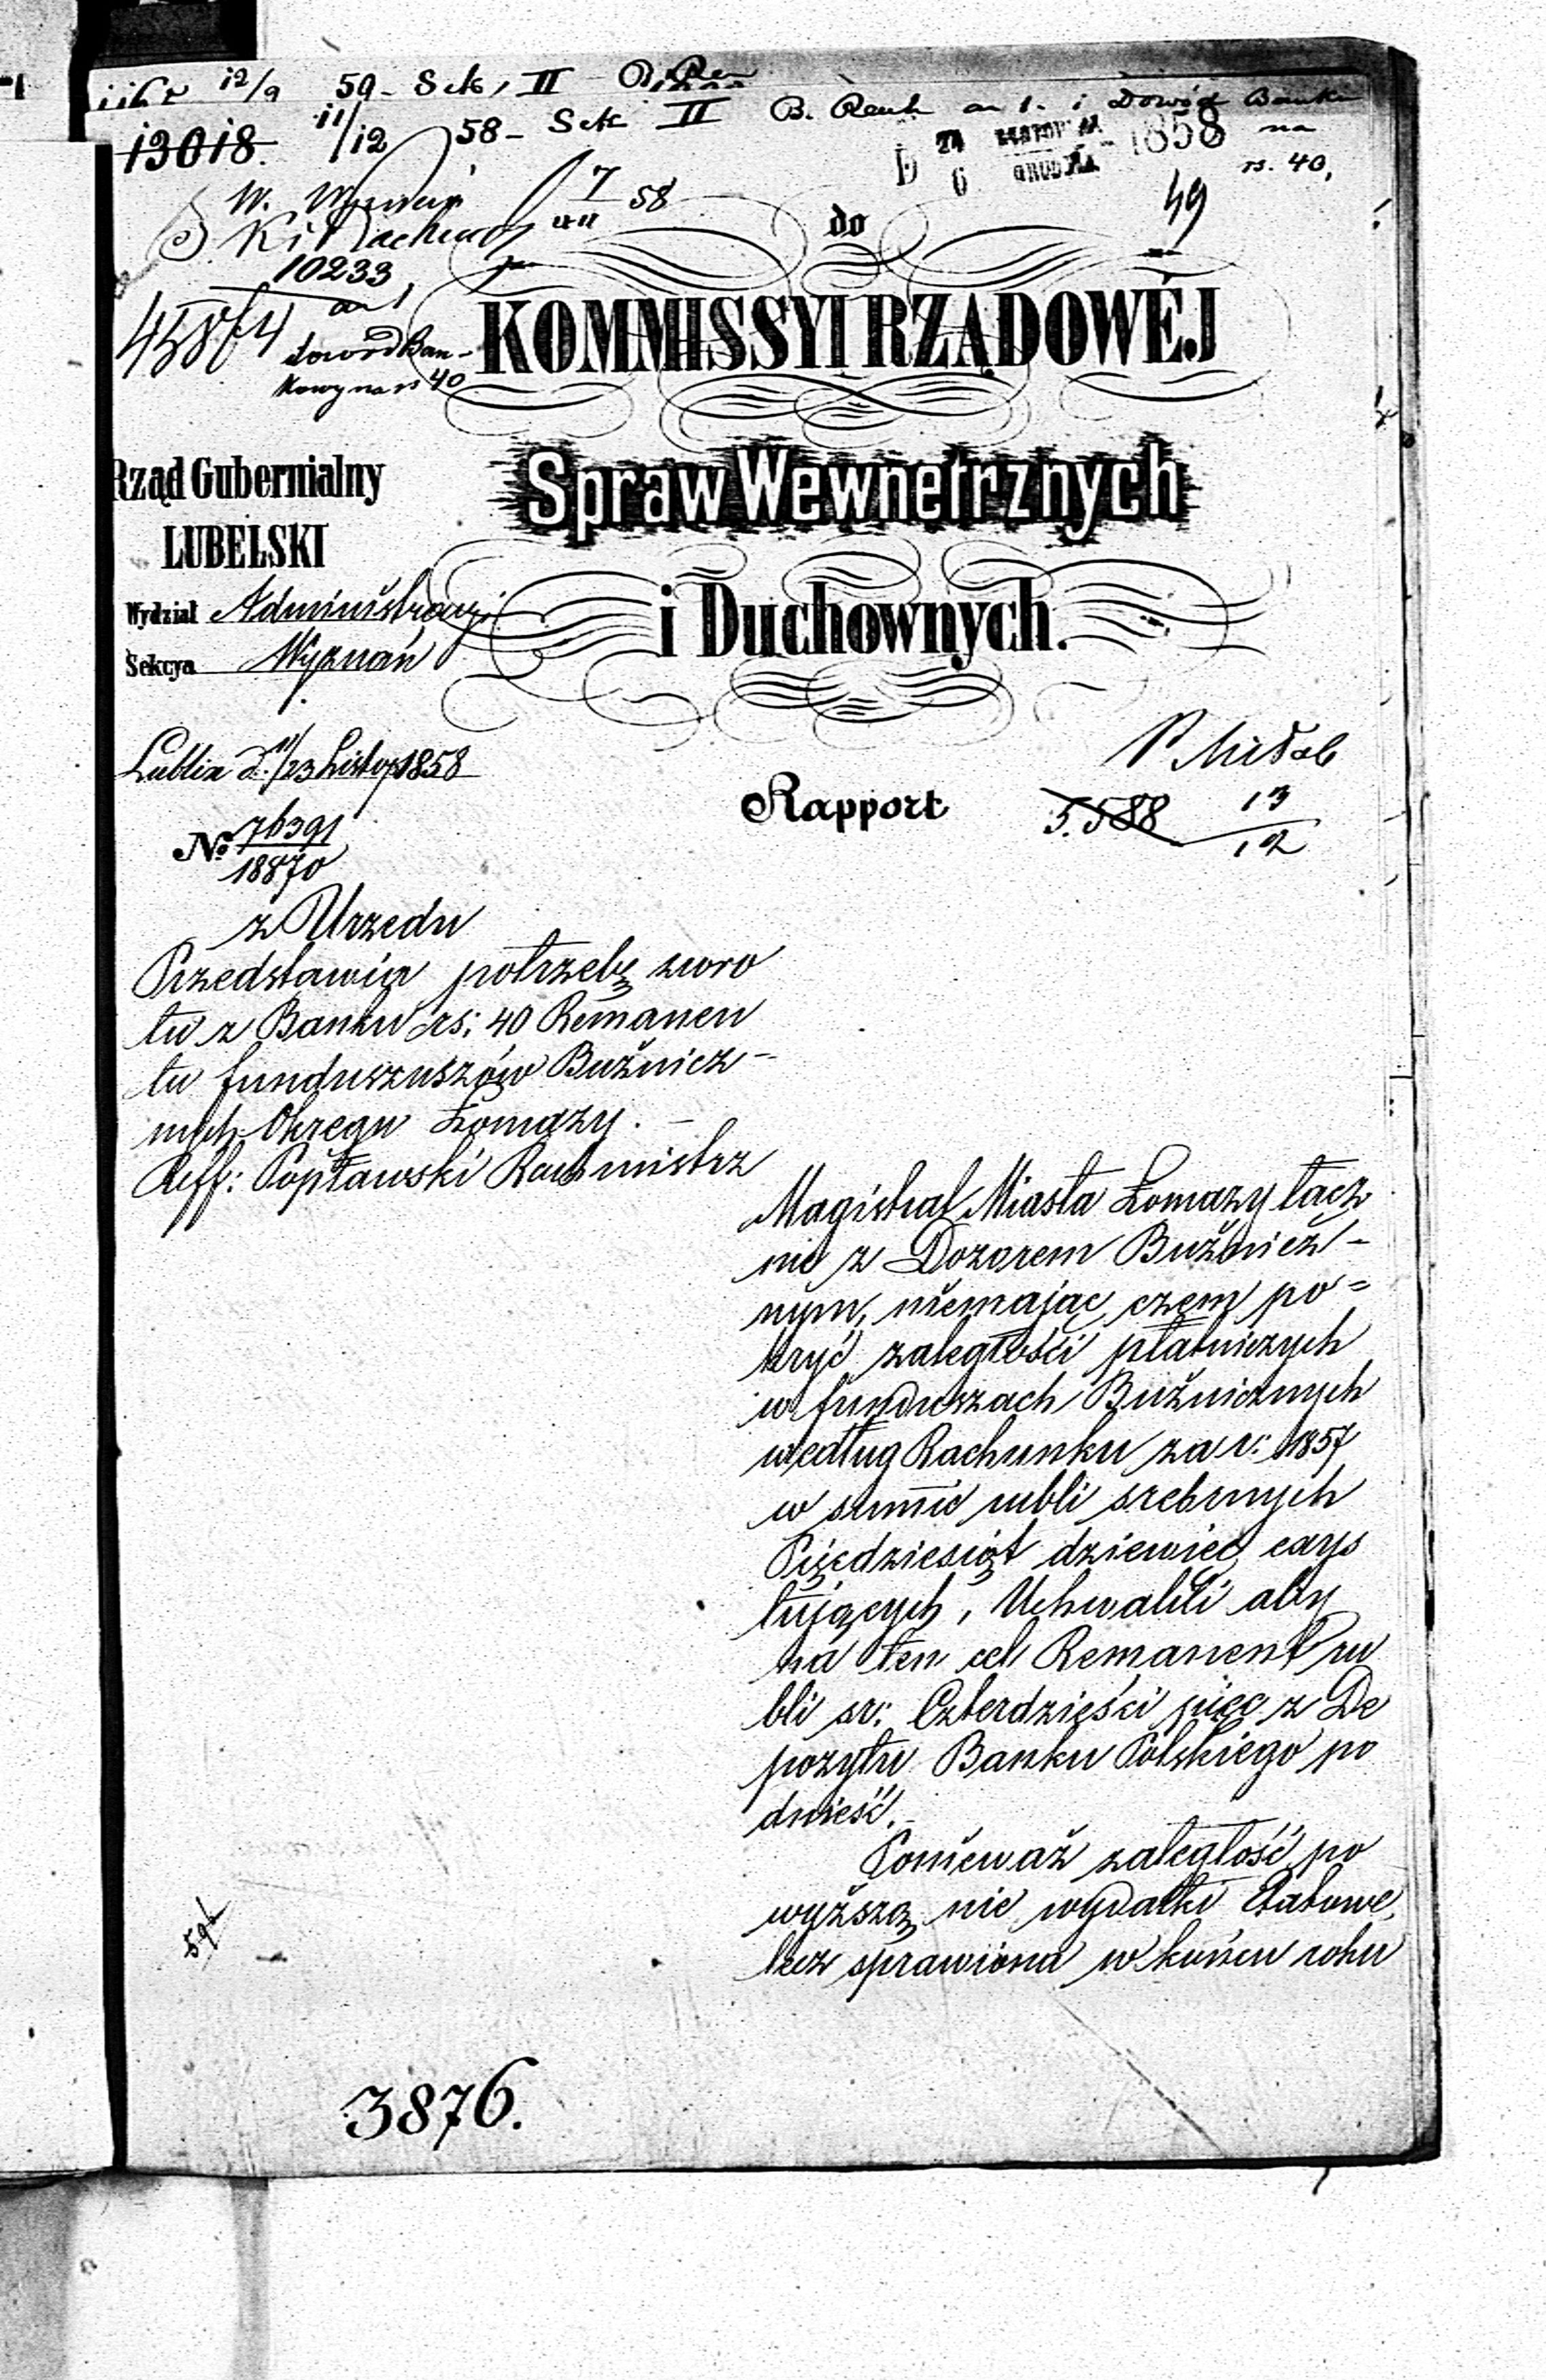 12/9 59 - Sek, II
13018. 11/12 58 - Sek II B. Rach an 1. i Dowód Banku
na
rs. 40,
D 24 LISTOPADA 1858
6 GRUDNIA
W. Wyznań 7/XII 58
49
do
10233
an 1
45864 dowód Ban-
kowy na rs 40
KOMMISSYI RZĄDOWÉJ
Spraw Wewnetrznych
i Duchownych.
Rząd Gubernialny
LUBELSKI
Wydział Administracyj:
Sekcya Wyznań
Lublin d. 11/23 Listop 1858
№ 76391
18870
Rapport
5.588 13
12
z Urzedu
Przedstawia potrzebę zwro
tu z Banku rs: 40 Remanen
tu funduszuszów Bużnicz-
nych Okregu Łomazy. -
Reff: Popławski Rachmistrz
Magistrat Miasta Łomazy łacz
nie z Dozorem Bużnicz-
nym, niemając czem po=
kryć zaległości płatniczych
w funduszach Bużnicznych
według Rachunku za r: 1857
w summie rubli srebrnych
Pięćdziesiąt dziewięć exys
tujących, Uchwalili aby
na ten cel Remanent ru
bli sr: Czterdzieści pięc z De
pozytu Banku Polskiego po
dnieść. -
Ponieważ zaległość po
wyższa nie wydatki Etatowe,
lecz sprawiona w końcu roku
3876.